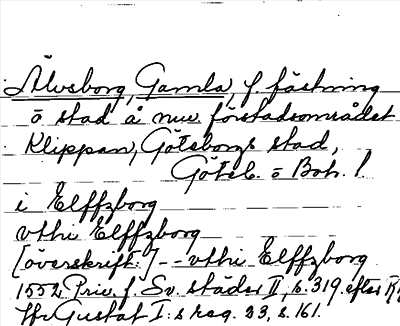 Älvsborg, Gamla, f. fästning
o stad å nuv förstadsområdet
Klippan, Göteborgs stad,
Göteb. o Boh. l.
i Elffzborg
vthi Elffzborg
[överskrift:] -- vthi Elffzborg
1552 Priv. f. Sv. städer II, s. 319. efter
Gustaf I:s reg. 23, s. 161.